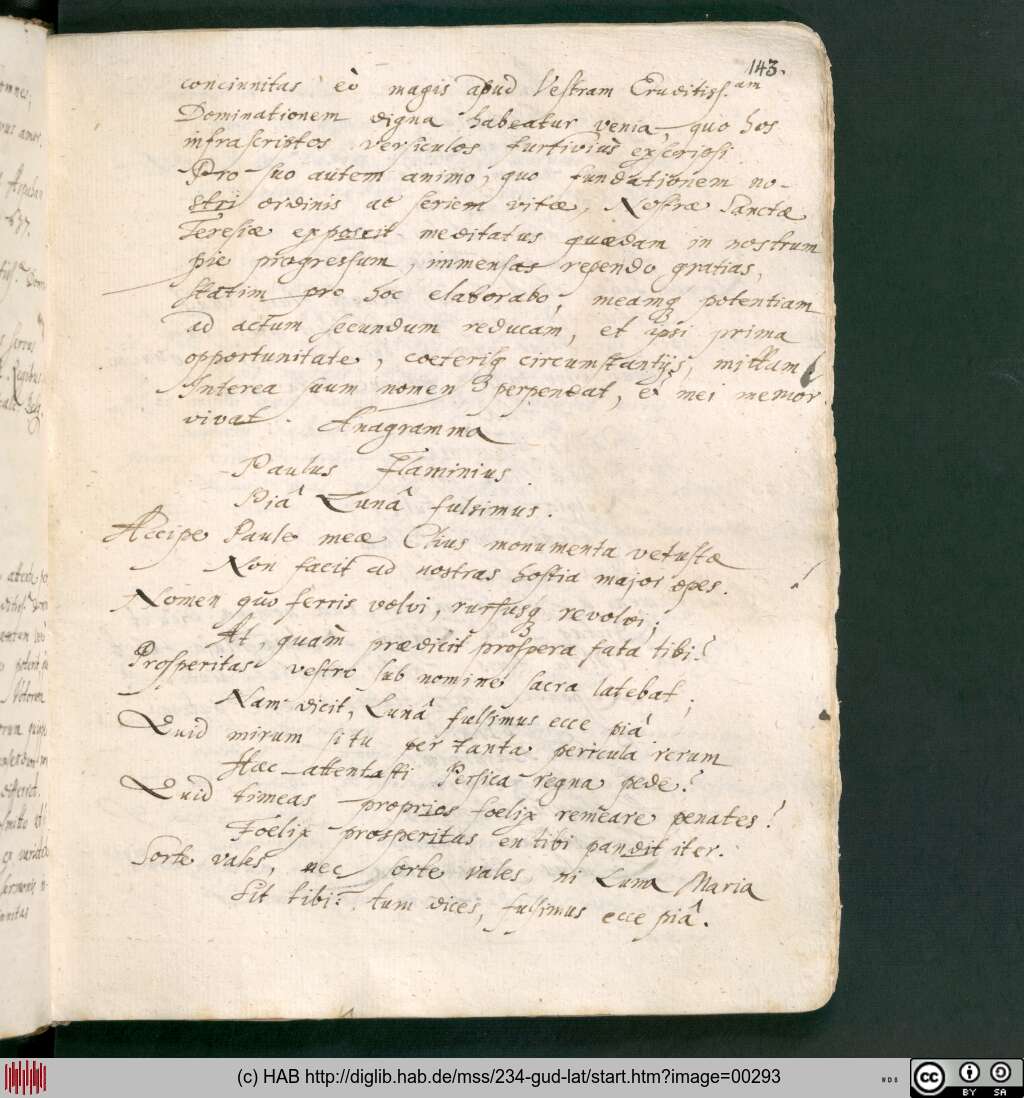 143.
concinnitas eò magis apud Vestram Eruditiss.am
Dominationem digna habeatur venia, quo hos
infrascriptos versiculos furtivius exscripsi.
Pro suo autem animo, quo fundationem no-
stri ordinis ac seriem vitæ, Nostræ Sanctæ
Teresiæ exposcit meditatus quædam in nostrum
pie progressum, immensas rependo gratias,
statim pro hoc elaborabo, meamq potentiam
ad actum secundum reducam, et ipsi prima
opportunitate, coeterisq circumstantijs, mittam
Interea suum nomen perpendat, & mei memor
vivat. Anagramma
Paulus Flaminius.
Piâ Lunâ fulsimus.
Accipe Paule meæ Clius monumenta vetustæ
Non facit ad nostras hostia major opes.
Nomen quo ferris volvi, rursusq revolvi;
At, quam prædicit prospera fata tibi?
Prosperitas vestro sub nomine sacra latebat;
Nam dicit, Lunâ fulsimus ecce piâ
Quid mirum si tu per tanta pericula rerum
Hæc attentasti Persica regna pede?
Quid timeas proprios foelix remeare penates?
Foelix prosperitas en tibi pandit iter.
Sorte vales, nec sorte vales, ni Luna Maria
Sit tibi: tum dices, fulsimus ecce piâ.
(c) HAB http://diglib.hab.de/mss/234-gud-lat/start.htm?image=00293
cc BY SA